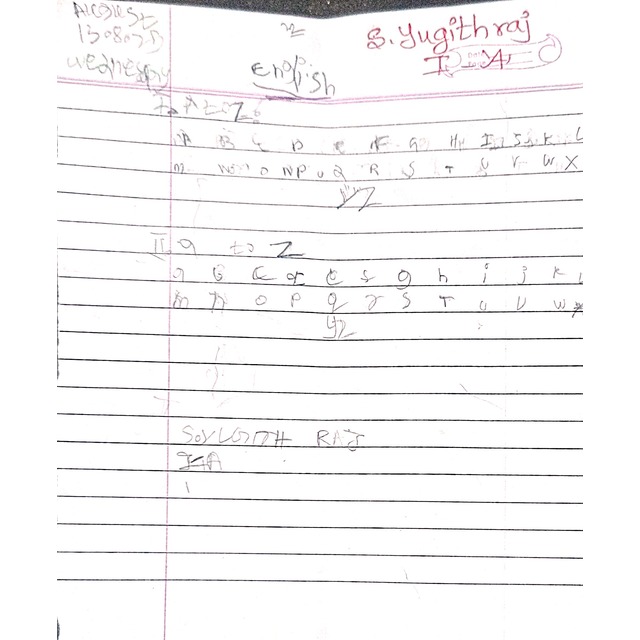 August
13.08.25
wednesday
English
S. Yugith raj
I - A
I. A to Z:
A B C D E F G H I J K L
M N O P Q R S T U V W X
YZ
II. a to Z
a B C d e f g h i j k l
m n o p q r S T u V w x
yz
S.YUGITH RAJ
I-A